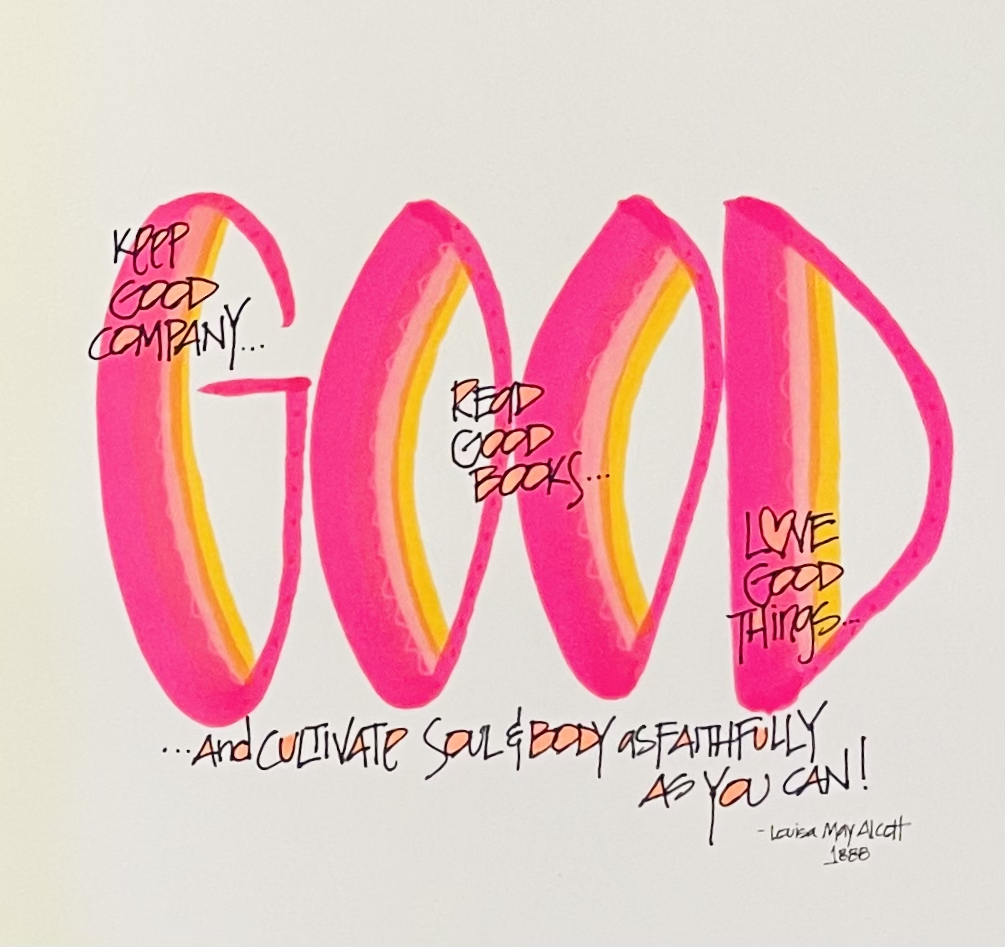 GOOD
Keep
GOOD
COMPANY...
Read
GOOD
BOOKS...
LOVE
GOOD
THings...
...And CULTIVATE SOUL & BODY as FAITHFULLY
AS YOU CAN!
- Louisa May Alcott
1888